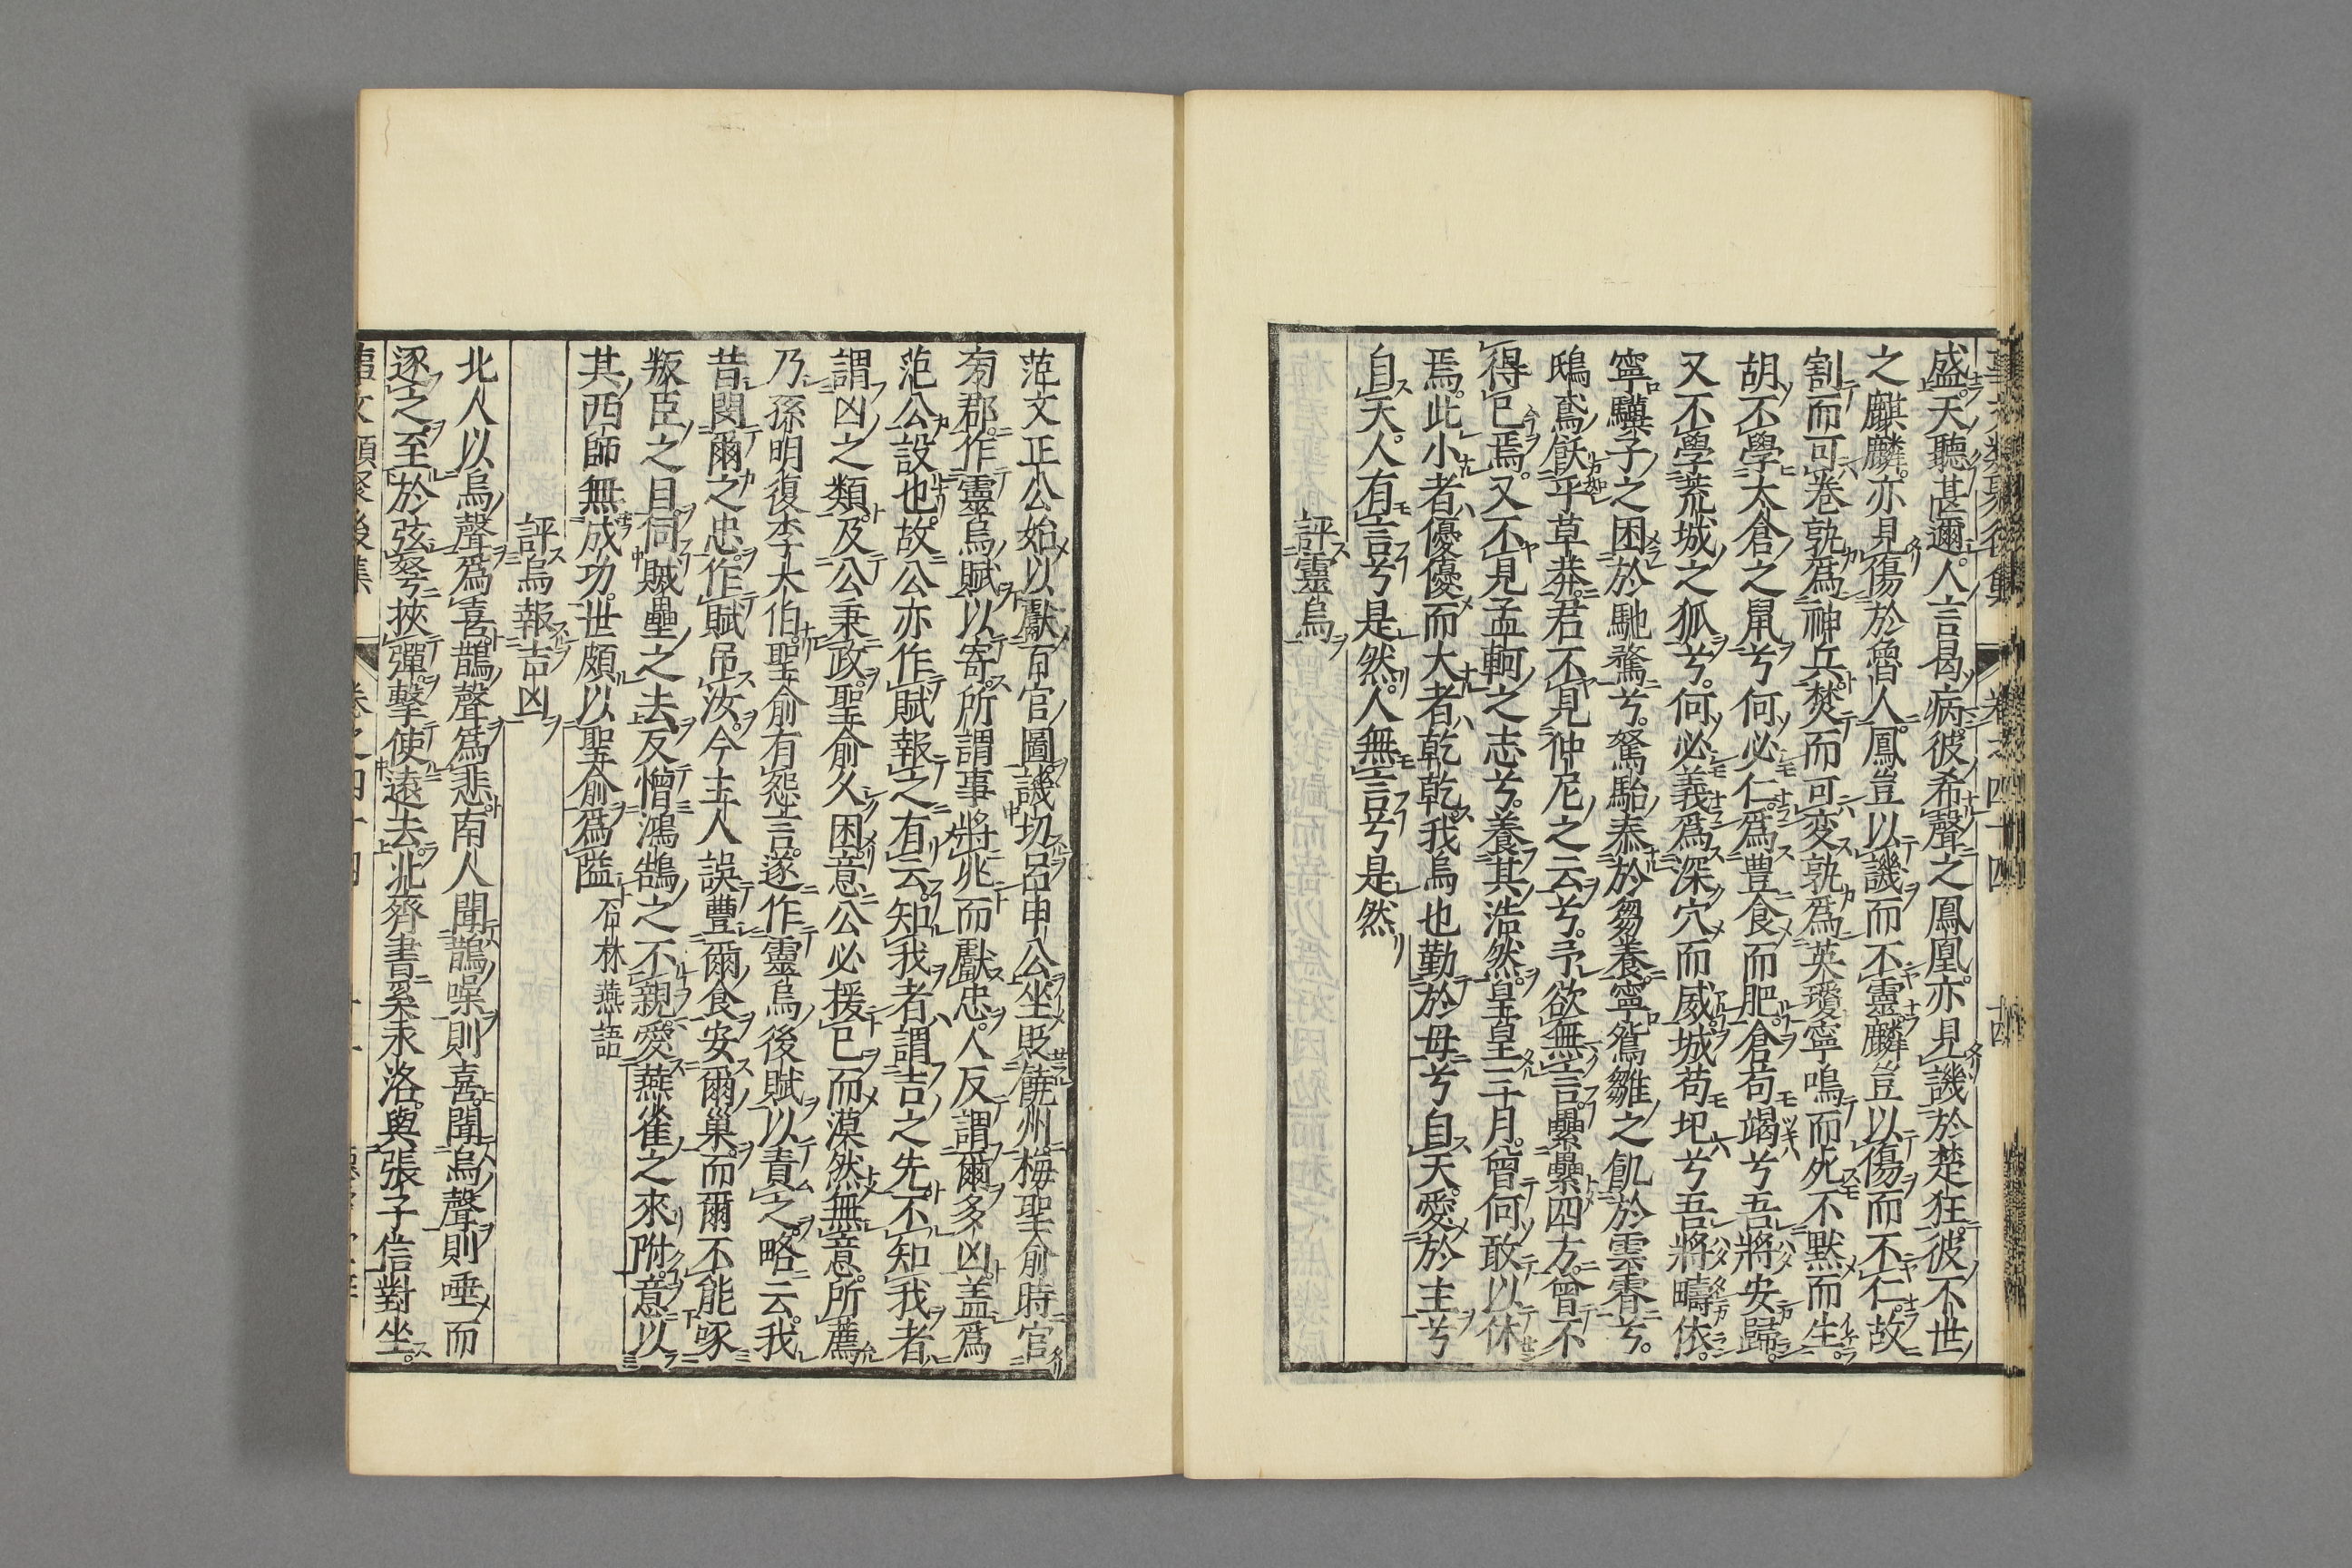 盛天聽甚邇人言曷病彼希聲之鳳凰亦見譏於楚狂彼不世
之麒麟亦見傷於魯人鳳豈以譏而不靈麟豈以傷而不仁故
割而可卷孰爲神兵焚而可変孰爲英瓊寧鳴而死不黙而生
胡不學太倉之鼠兮何必仁爲豊食而肥倉苟竭兮吾將安歸
又不學荒城之狐兮何必義爲深穴而威城苟圯兮吾將疇依
寧驥子之困於馳騖兮駑駘泰於芻養寧鵷雛之飢於雲霄兮
鴟鳶飫乎草莽君不見仲尼之云兮予欲無言纍纍四方曽不
得已焉又不見孟軻之志兮養其浩然皇皇三月曽何敢以休
焉此小者優優而大者乾乾我烏也勤於母兮自天愛於主兮
自天人有言兮是然人無言兮是然
評靈烏
范文正公始以獻百官圖譏切呂申公坐貶饒州梅聖俞時官
旁郡作靈烏賦以寄所謂事將兆而獻忠人反謂爾多凶盖爲
范公設也故公亦作賦報之有云知我者謂吉之先不知我者
謂凶之類及公秉政聖俞久困意公必援已而漠然無意所薦
乃孫明復李大伯聖俞有怨言遂作靈烏後賦以責之略云我
昔閔爾之忠作賦吊汝今主人誤豐爾食安爾巢而爾不能啄
叛臣之目伺賊壘之去反憎鴻鵠之不親愛燕雀之來附意以
其西師無成功世頗以聖俞爲隘 石林燕語
評烏報吉凶
北人以烏聲爲喜鵲聲爲悲南人聞鵲噪則喜聞烏聲則唾而
逐之至於弦弩挾彈擊使遠去北齊書奚永洛與張子信對坐